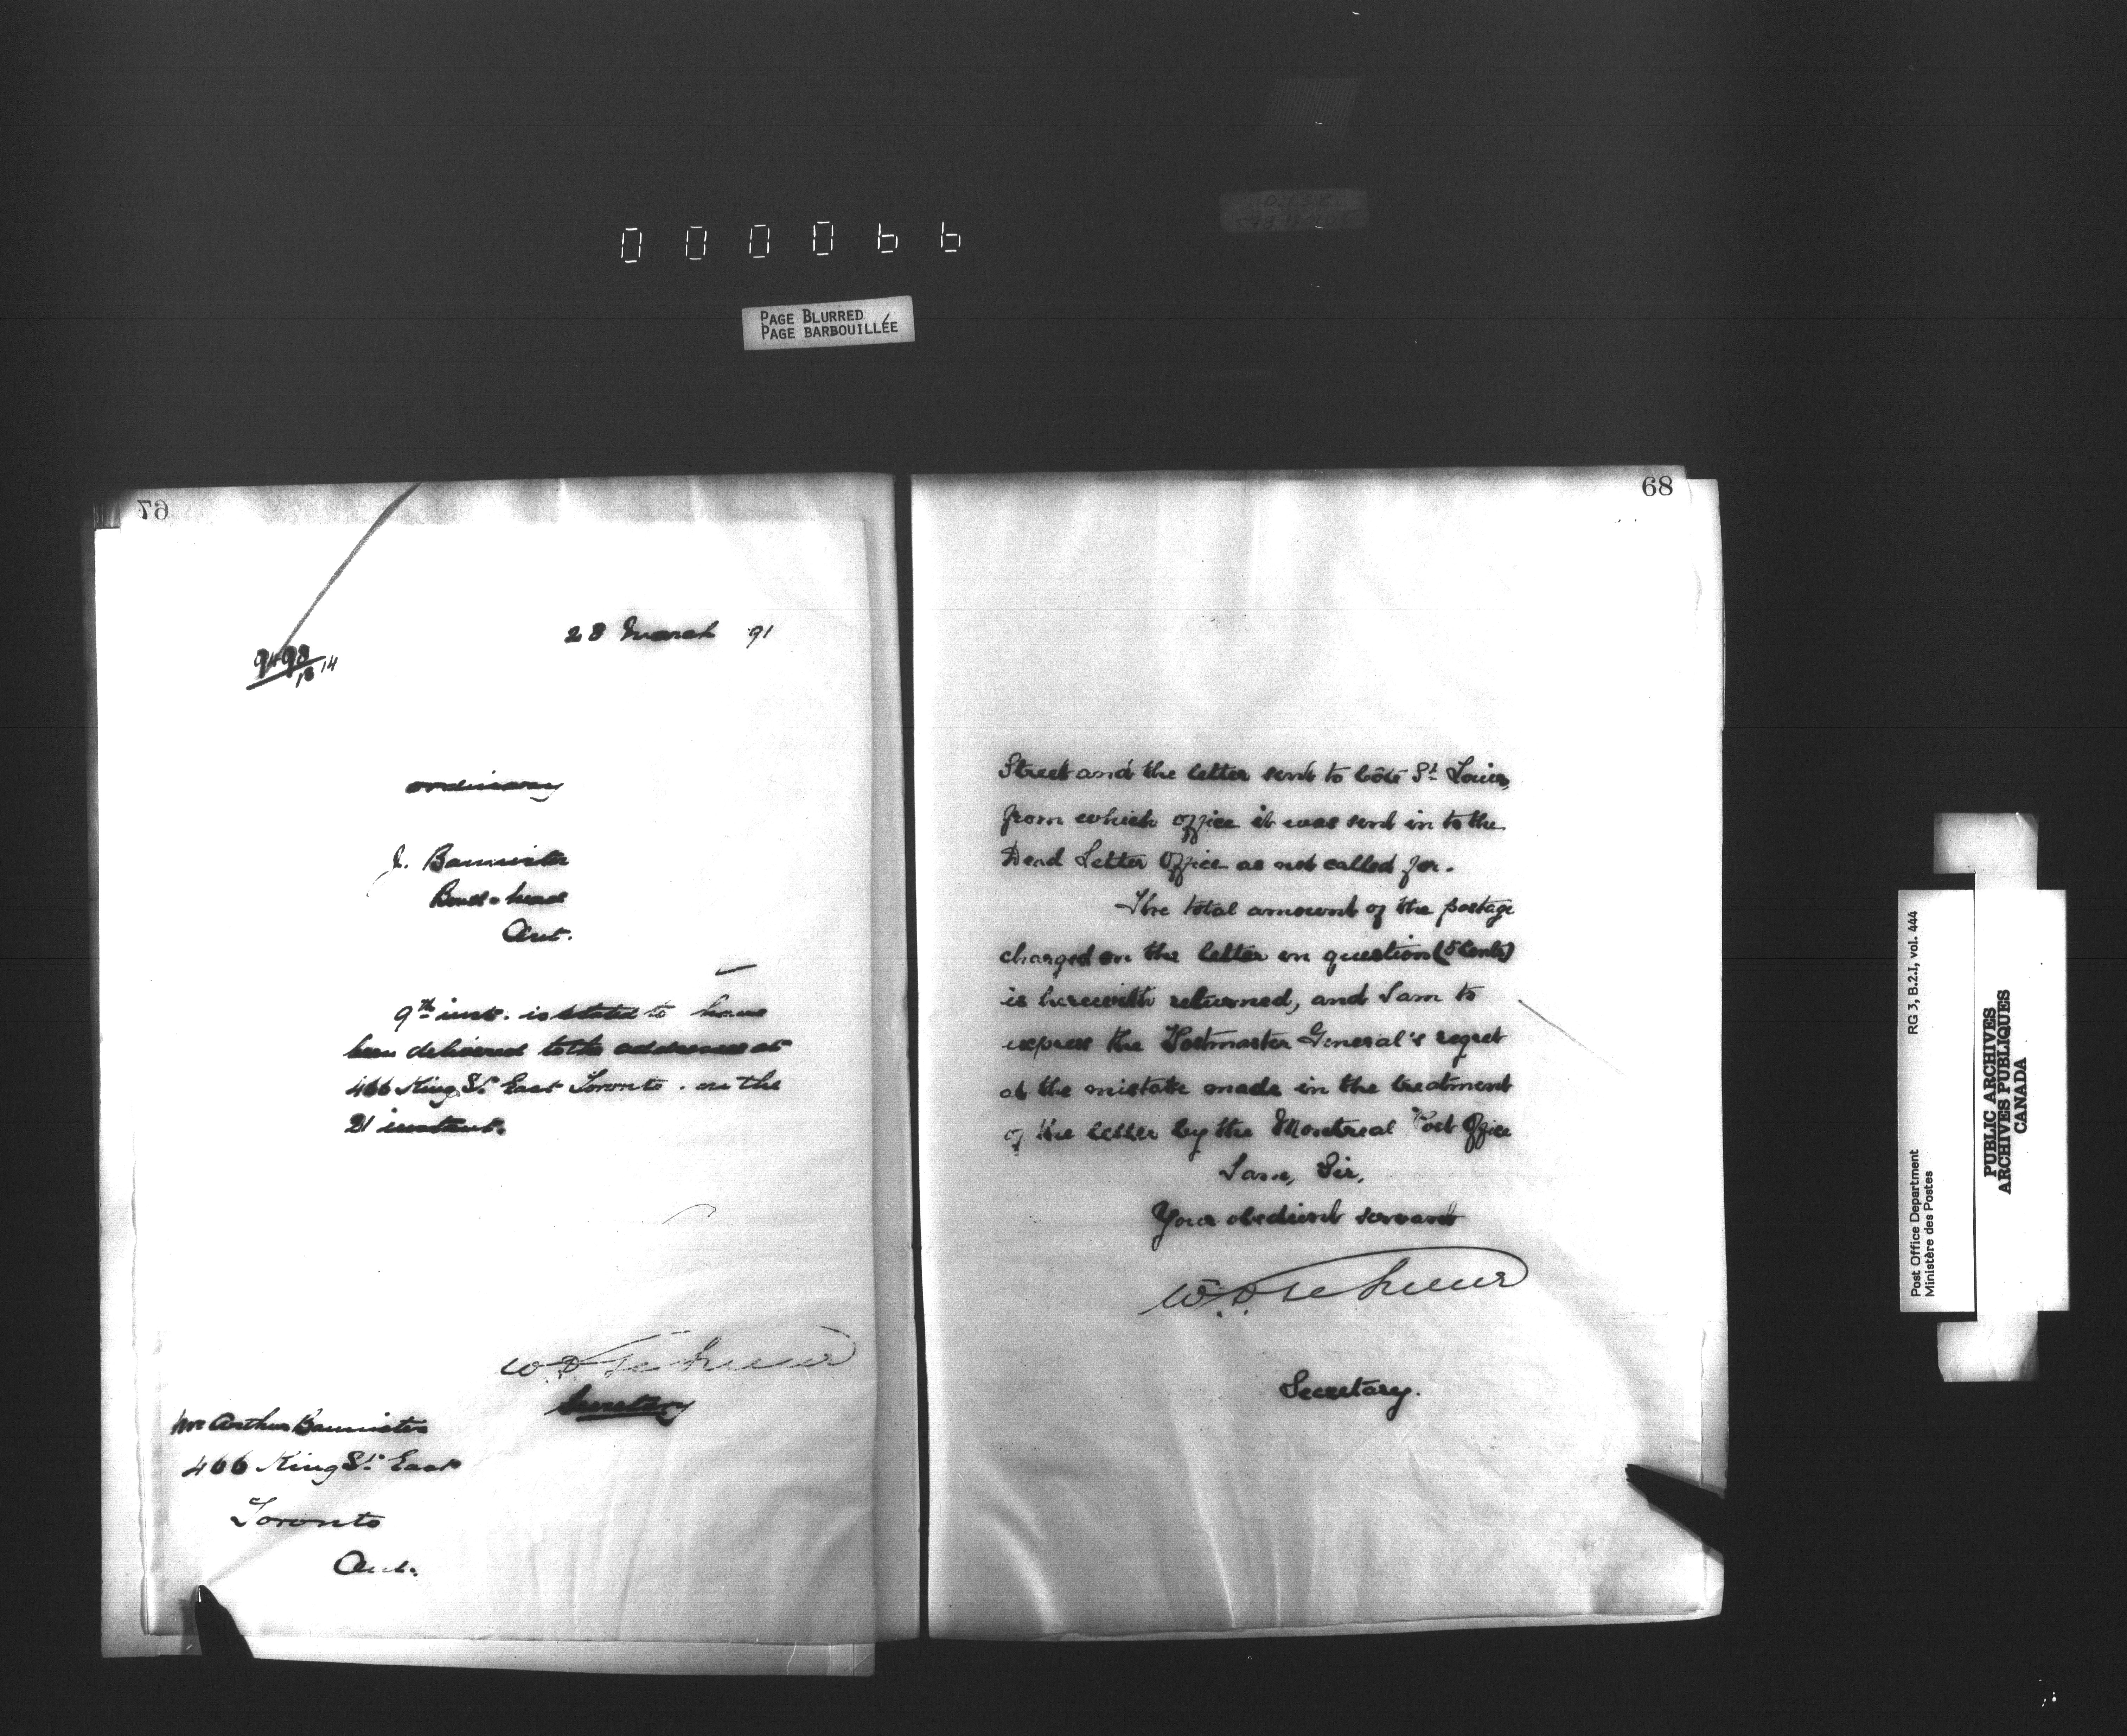 000066
PAGE BLURRED
PAGE BARBOUILLÉE
67
28 March 91
9498
18 14
ordinary
J. Bannister
Ont.
9th inst. is stated to have
been delivered to the addressee at
466 King St. East Toronto. on the
21 instant.
W. D. LeSueur
Secretary
Mr Arthur Bannister
466 King St. East
Toronto
Ont.
68
Street and the letter sent to Côte St. Louis,
from which office it was sent in to the
Dead Letter Office as not called for.
The total amount of the postage
charged on the letter in question (5 Cents)
is herewith returned, and I am to
express the Postmaster General's regret
at the mistake made in the treatment
of the letter by the Montreal Post Office
I am, Sir,
Your obedient servant
W. D. LeSueur
Secretary.
Post Office Department
Ministère des Postes
RG 3, B.2.I, vol. 444
PUBLIC ARCHIVES
ARCHIVES PUBLIQUES
CANADA